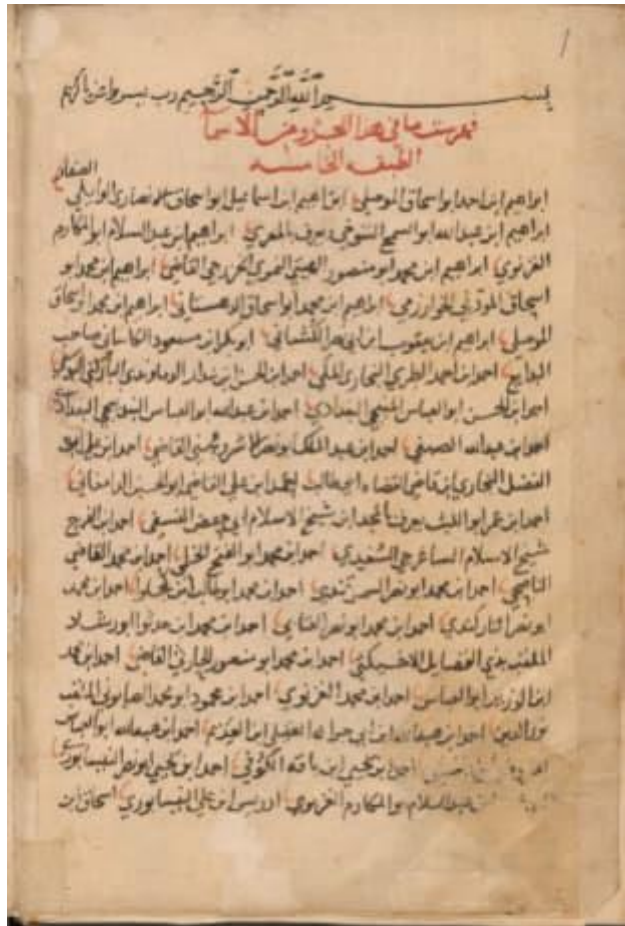 1
بسم الله الرحمن الرحيم رب يسر واعن يا كريم
فهرست ما في هدا الجزو من الاسما
الطبقه الخامسه
ابراهيم ابن احمد ابو اسحاق الموصلي ابراهيم ابن اسماعيل ابو اسحاق الانصاري الوايلي الصفار
ابراهيم ابن عبد الله ابو السمح التنوخي يعرف بالمعري ابراهيم ابن عبد السلام ابو المكارم
الغزنوي ابراهيم ابن محمد ابو منصور الهيتي القاضي ابراهيم ابن محمد ابو
اسحاق المودني الخوارزمي ابراهيم ابن محمد ابو اسحاق الدهستاني ابراهيم ابن محمد ابو اسحاق
الموصلي ابراهيم ابن يعقوب ابن ابي نصر الكشاني ابو بكر ابن مسعود الكاساني صاحب
البدايع احمد ابن احمد الطبري البخاري احمد ابن الحسن ابن بندار
احمد ابن الحسن ابو العباس البغدادي احمد ابن عبد الله ابو العباس
احمد ابن عبد الله الصبغي احمد ابن عبد الملك ابو نصر القاضي احمد ابن علي ابو
الفضل البخاري ابن قاضي القضاه ابي طالب احمد ابن علي القاضي ابو الحسين الدامغاني
احمد ابن عمر ابو الليث يعرف بالمجد ابن شيخ الاسلام ابي حفص النسفي احمد ابن الفرج
شيخ الاسلام الساغرجي السغدي احمد ابن محمد ابو الفتح الخلمي احمد ابن محمد القاضي
الناصحي احمد ابن محمد ابو نصر السمرقندي احمد ابن محمد ابو طالب احمد ابن محمد
ابو نصر احمد ابن محمد ابو نصر العتابي احمد ابن محمد ابن حمد ابو
الملقب بذي الفضايل الاخسيكتي احمد ابن محمد ابو منصور الحارثي القاضي احمد ابن محمد
ابن الوزير ابو العباس احمد ابن محمد الغزنوي احمد ابن محمود ابو محمد الصابوني الملقب
نور الدين احمد ابن هبة الله ابن ابي جراده العقيلي ابن العديم احمد ابن هبة الله ابو العباس
احمد ابن يحيى ابن ناقه الكوفي احمد ابن يحيى ابو نصر النيسابوري
عبد السلام ابو المكارم الغزنوي ادريس ابن علي النيسابوري اسحاق ابن